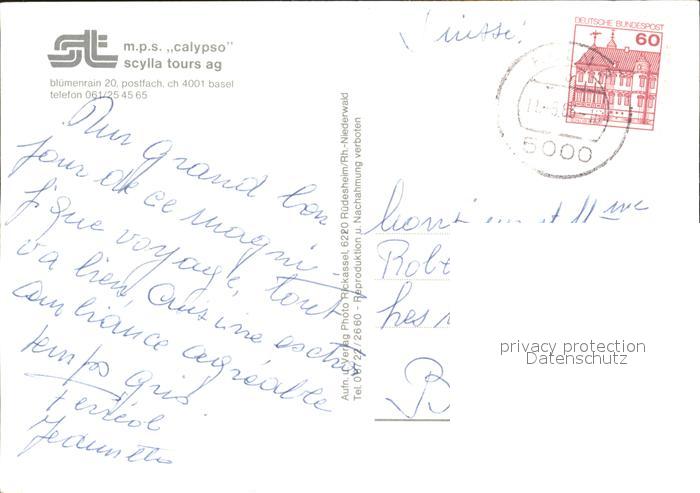 m.p.s. „calypso"
scylla tours ag
blümenrain 20, postfach, ch 4001 basel
telefon 061/25 45 65
Suisse!
DEUTSCHE BUNDESPOST
60
5000
Un grand bon
jour de ce magni-
fique voyage, tout
va bien, cuisine extra
ambiance agréable
temps gris.
Jeannette
Aufn. u. Verlag Photo Rickassel, 6220 Rüdesheim/Rh.-Niederwald
Tel. 06722/2660 - Reproduktion u. Nachahmung verboten
Monsieur et Mme
Rob
privacy protection
Datenschutz